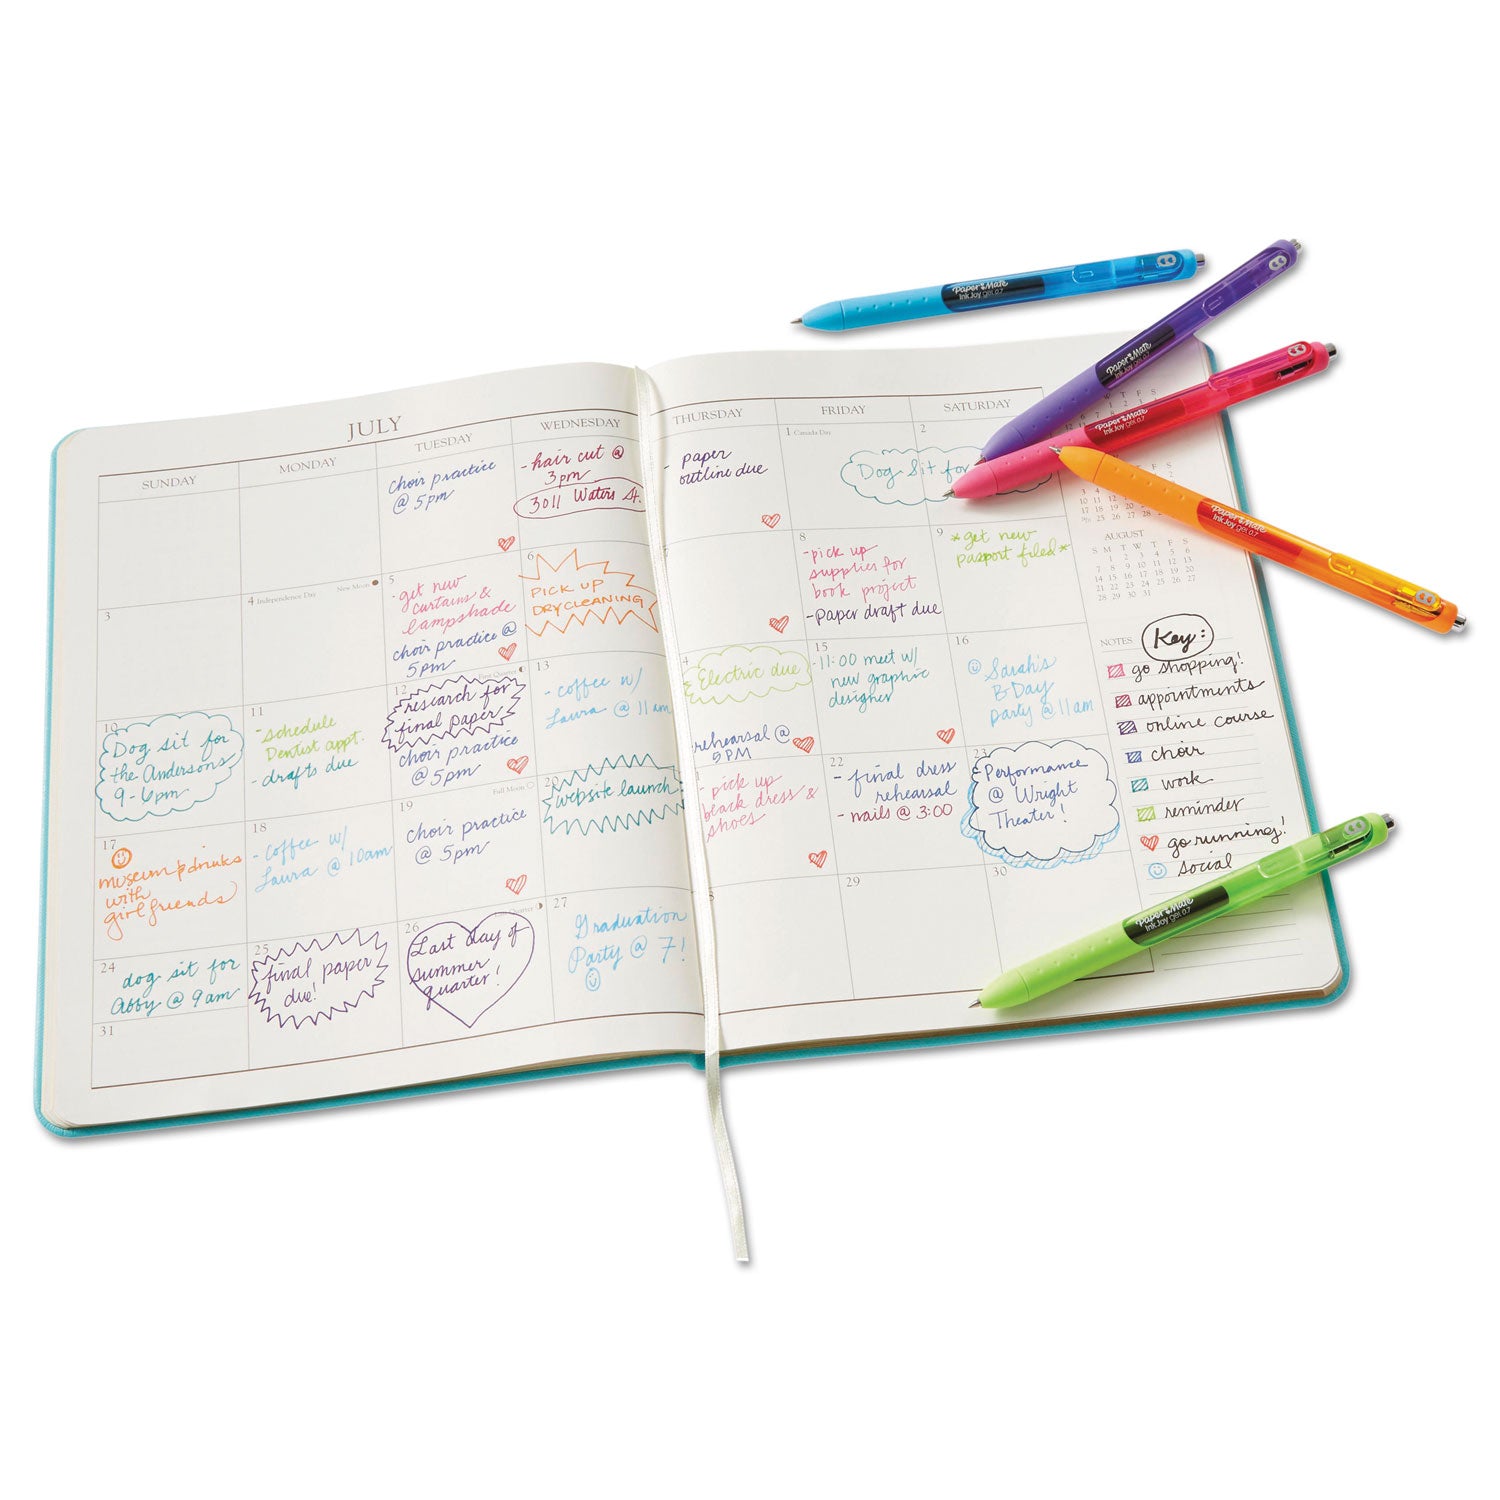 JULY
SUNDAY
MONDAY
TUESDAY
WEDNESDAY
THURSDAY
FRIDAY
SATURDAY
choir practice
@ 5pm
- hair cut @
3pm
3011 Waters St.
- paper
outline due
1 Canada Day
2
Dog Sit for
3
4 Independence Day
New Moon
5
- get new
curtains &
lampshade
choir practice @
5pm
6
PICK UP
DRYCLEANING
8
- pick up
supplies for
book project
- paper draft due
9
*get new
passport filed*
10
Dog sit for
the Andersons
9-6pm
11
- schedule
Dentist appt.
- drafts due
First Quarter
12
research for
final paper
choir practice
@ 5pm
13
- coffee w/
Laura @ 11am
4
Electric due
rehearsal @
5PM
15
- 11:00 meet w/
new graphic
designer
16
Sarah's
B-Day
party @ 11am
17
museum & drinks
with
girlfriends
18
- coffee w/
Laura @ 10am
Full Moon
19
choir practice
@ 5pm
20
website launch
- pick up
black dress &
shoes
22
- final dress
rehearsal
- nails @ 3:00
23
Performance
@ Wright
Theater!
24
dog sit for
Abby @ 9am
25
final paper
due!
26
Last day of
summer
quarter!
27
Graduation
Party @ 7!
29
30
31
AUGUST
S M T W T F S
1 2 3 4 5 6
7 8 9 10 11 12 13
14 15 16 17 18 19 20
21 22 23 24 25 26 27
28 29 30 31
NOTES
Key:
go shopping!
appointments
online course
choir
work
reminder
go running!
social
Paper Mate
InkJoy gel 0.7
Paper Mate
InkJoy gel 0.7
Paper Mate
InkJoy gel 0.7
Paper Mate
InkJoy gel 0.7
Paper Mate
InkJoy gel 0.7